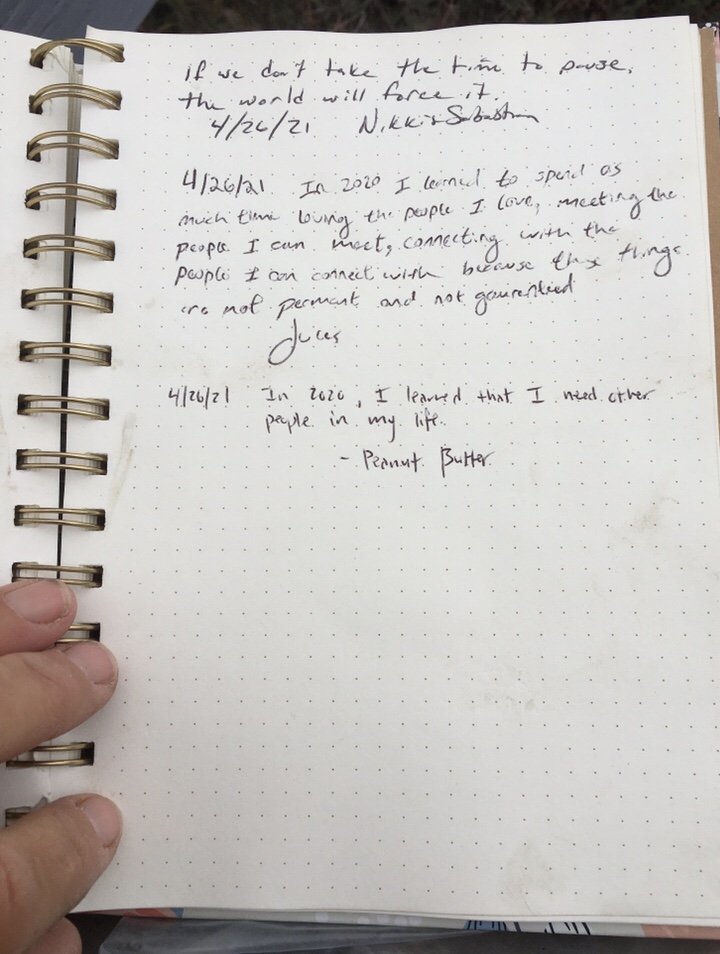 If we don't take the time to pause,
the world will force it.
4/26/21 Nikki + Sebastian
4/26/21 In 2020 I learned to spend as
much time loving the people I love, meeting the
people I can meet, connecting with the
people I can connect with because these things
are not permant and not gaurenteed
4/26/21 In 2020, I learned that I need other
people in my life.
- Peanut Butter